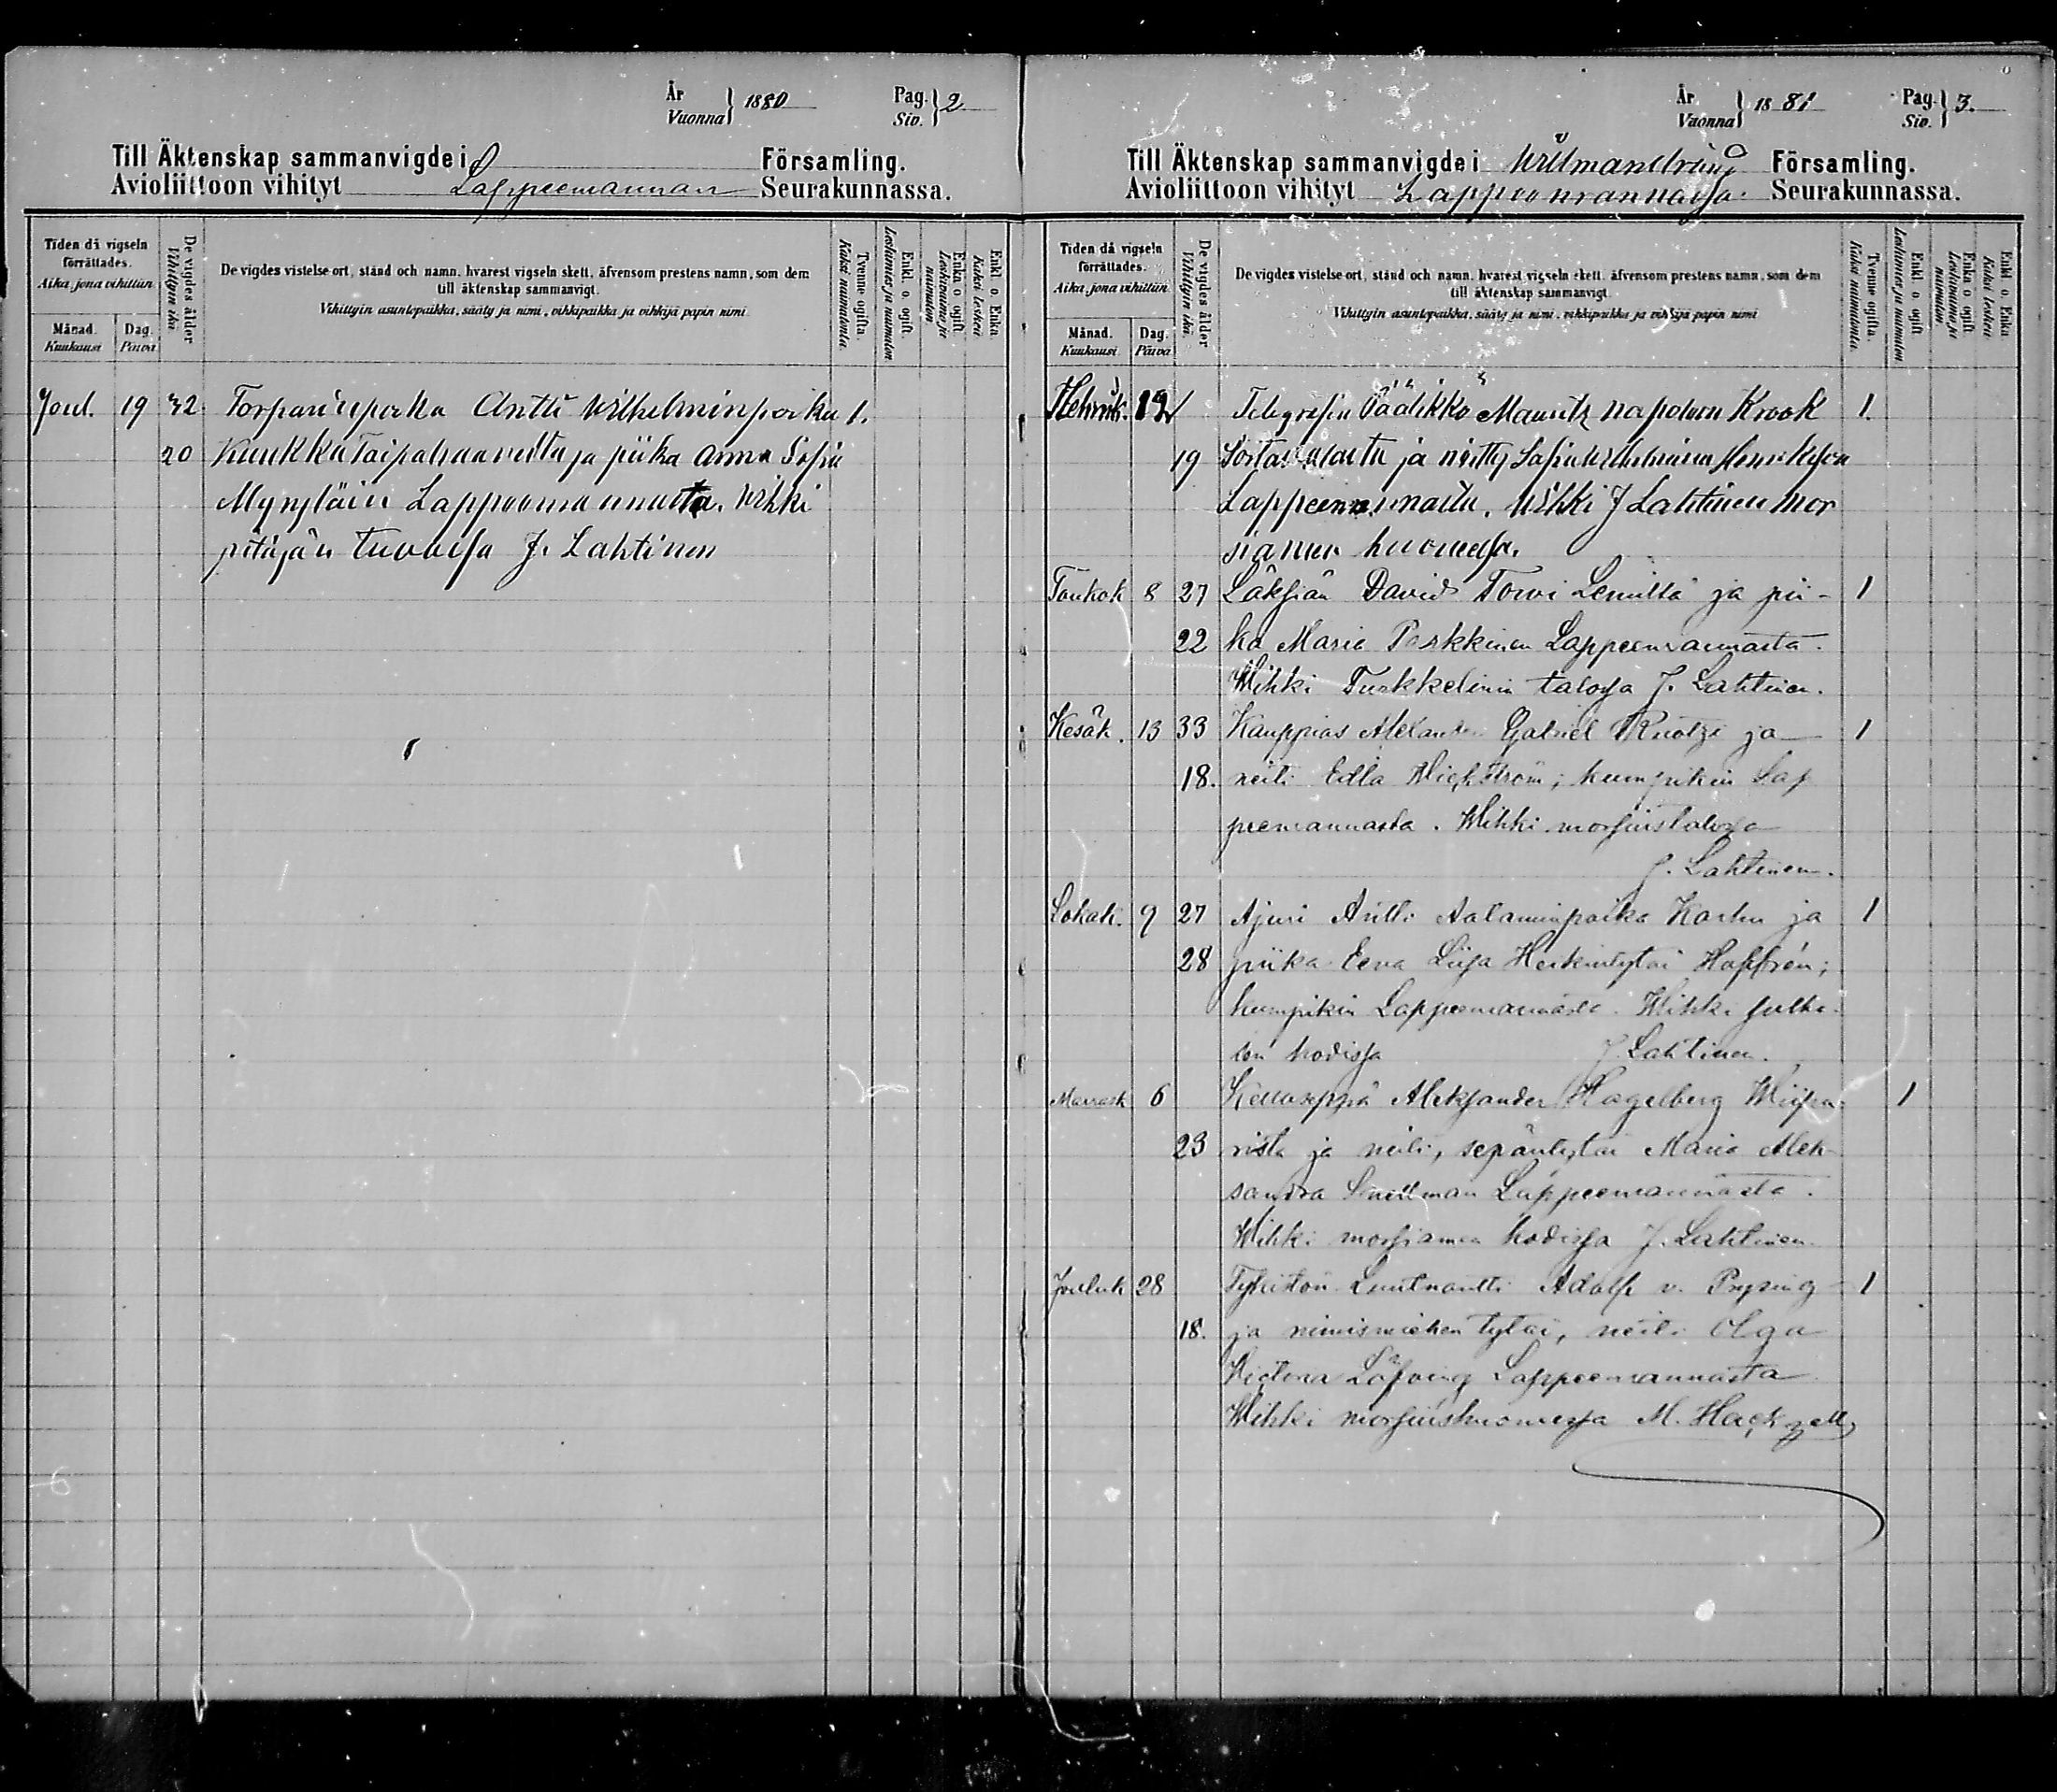 År
Vuonna } 1880
Pag.
Siv. } 2
Till Äktenskap sammanvigde i Församling.
Avioliittoon vihityt Lappeenrannan Seurakunnassa.
Tiden då vigseln förrättades.
Aika, jona vihittiin
Månad.
Kuukausi
Dag.
Päivä
De vigdes ålder
Vihittyin ikä
De vigdes vistelse ort, stånd och namn, hvarest vigseln skett, äfvensom prestens namn, som dem
till äktenskap sammanvigt.
Vihittyin asuntopaikka, sääty ja nimi, vihkipaikka ja vihkijä papin nimi
Tvenne ogifta.
Kaksi naimatonta.
Enkl. o. ogift.
Leskimies ja naimaton.
Enka o ogift.
Leskivaimo ja naimaton
Enkl. o. Enka
Kaksi leskeä
Joul. 19 32 Torparin poika Antti Wilhelminpoika 1.
20 Kuukka Taipalsaarelta ja piika Anna Sofia
Myryläin Lappeenrannasta. Wihki
pitäjän tuvassa J. Lahtinen
År
Vuonna } 1881
Pag.
Siv. } 3.
Till Äktenskap sammanvigde i Wilmanstrand Församling.
Avioliittoon vihityt Lappeenrannassa. Seurakunnassa.
Tiden då vigseln förrättades.
Aika, jona vihittiin
Månad.
Kuukausi
Dag.
Päivä
De vigdes ålder
Vihittyin ikä.
De vigdes vistelse ort, stånd och namn, hvarest vigseln skett, äfvensom prestens namn, som dem
till äktenskap sammanvigt.
Vihittyin asuntopaikka, sääty ja nimi, vihkipaikka ja vihkijä papin nimi
Tvenne ogifta.
Kaksi naimatonta.
Enkl. o. ogift.
Leskimies ja naimaton
Enka o. ogift.
Leskivaimo ja naimaton.
Enkl o. Enka
Kaksi leskeä
Helmik. Telegrafin Päälikkö Mauritz Napoleon Krook 1.
19 Sortavalasta ja neitty Sofia Wilhelmina Henriksson
Lappeenrannasta. Wihki J Lahtinen mor
siamen huoneessa.
Toukok 8 27 David Torvi Lemiltä ja pii- 1
22 ka Maria Parkkinen Lappeenrannasta.
Wihki Turkkelinin talossa J. Lahtinen.
Kesäk. 13 33 Kauppias Alexander Gabriel Ruotzi ja 1
18. neiti Edla Wickström; kumpikin Lap
peenrannasta. Wihki morsiustalossa
J. Lahtinen.
Lokak. 9 27 Ajuri Antti Aataminpoika Karhu ja 1
28 piika Eeva Liisa Heikintytär Haffrén;
kumpikin Lappeenrannasta. Wihki sulha-
sen kodissa J. Lahtinen.
Marrask 6 Kelloseppä Aleksander Hagelberg Wiipu- 1
23 rista ja neiti, sepäntytär Maria Alek-
sandra Snellman Lappeenrannasta.
Wihki morsiamen kodissa J. Lahtinen.
Jouluk 28 Tykistön Luutnantti Adolf v. Prysing 1
18. ja nimismiehen tytär, neiti Olga
Victoria Löfving Lappeenrannasta
Wihki morsiushuoneessa M. Hackzell